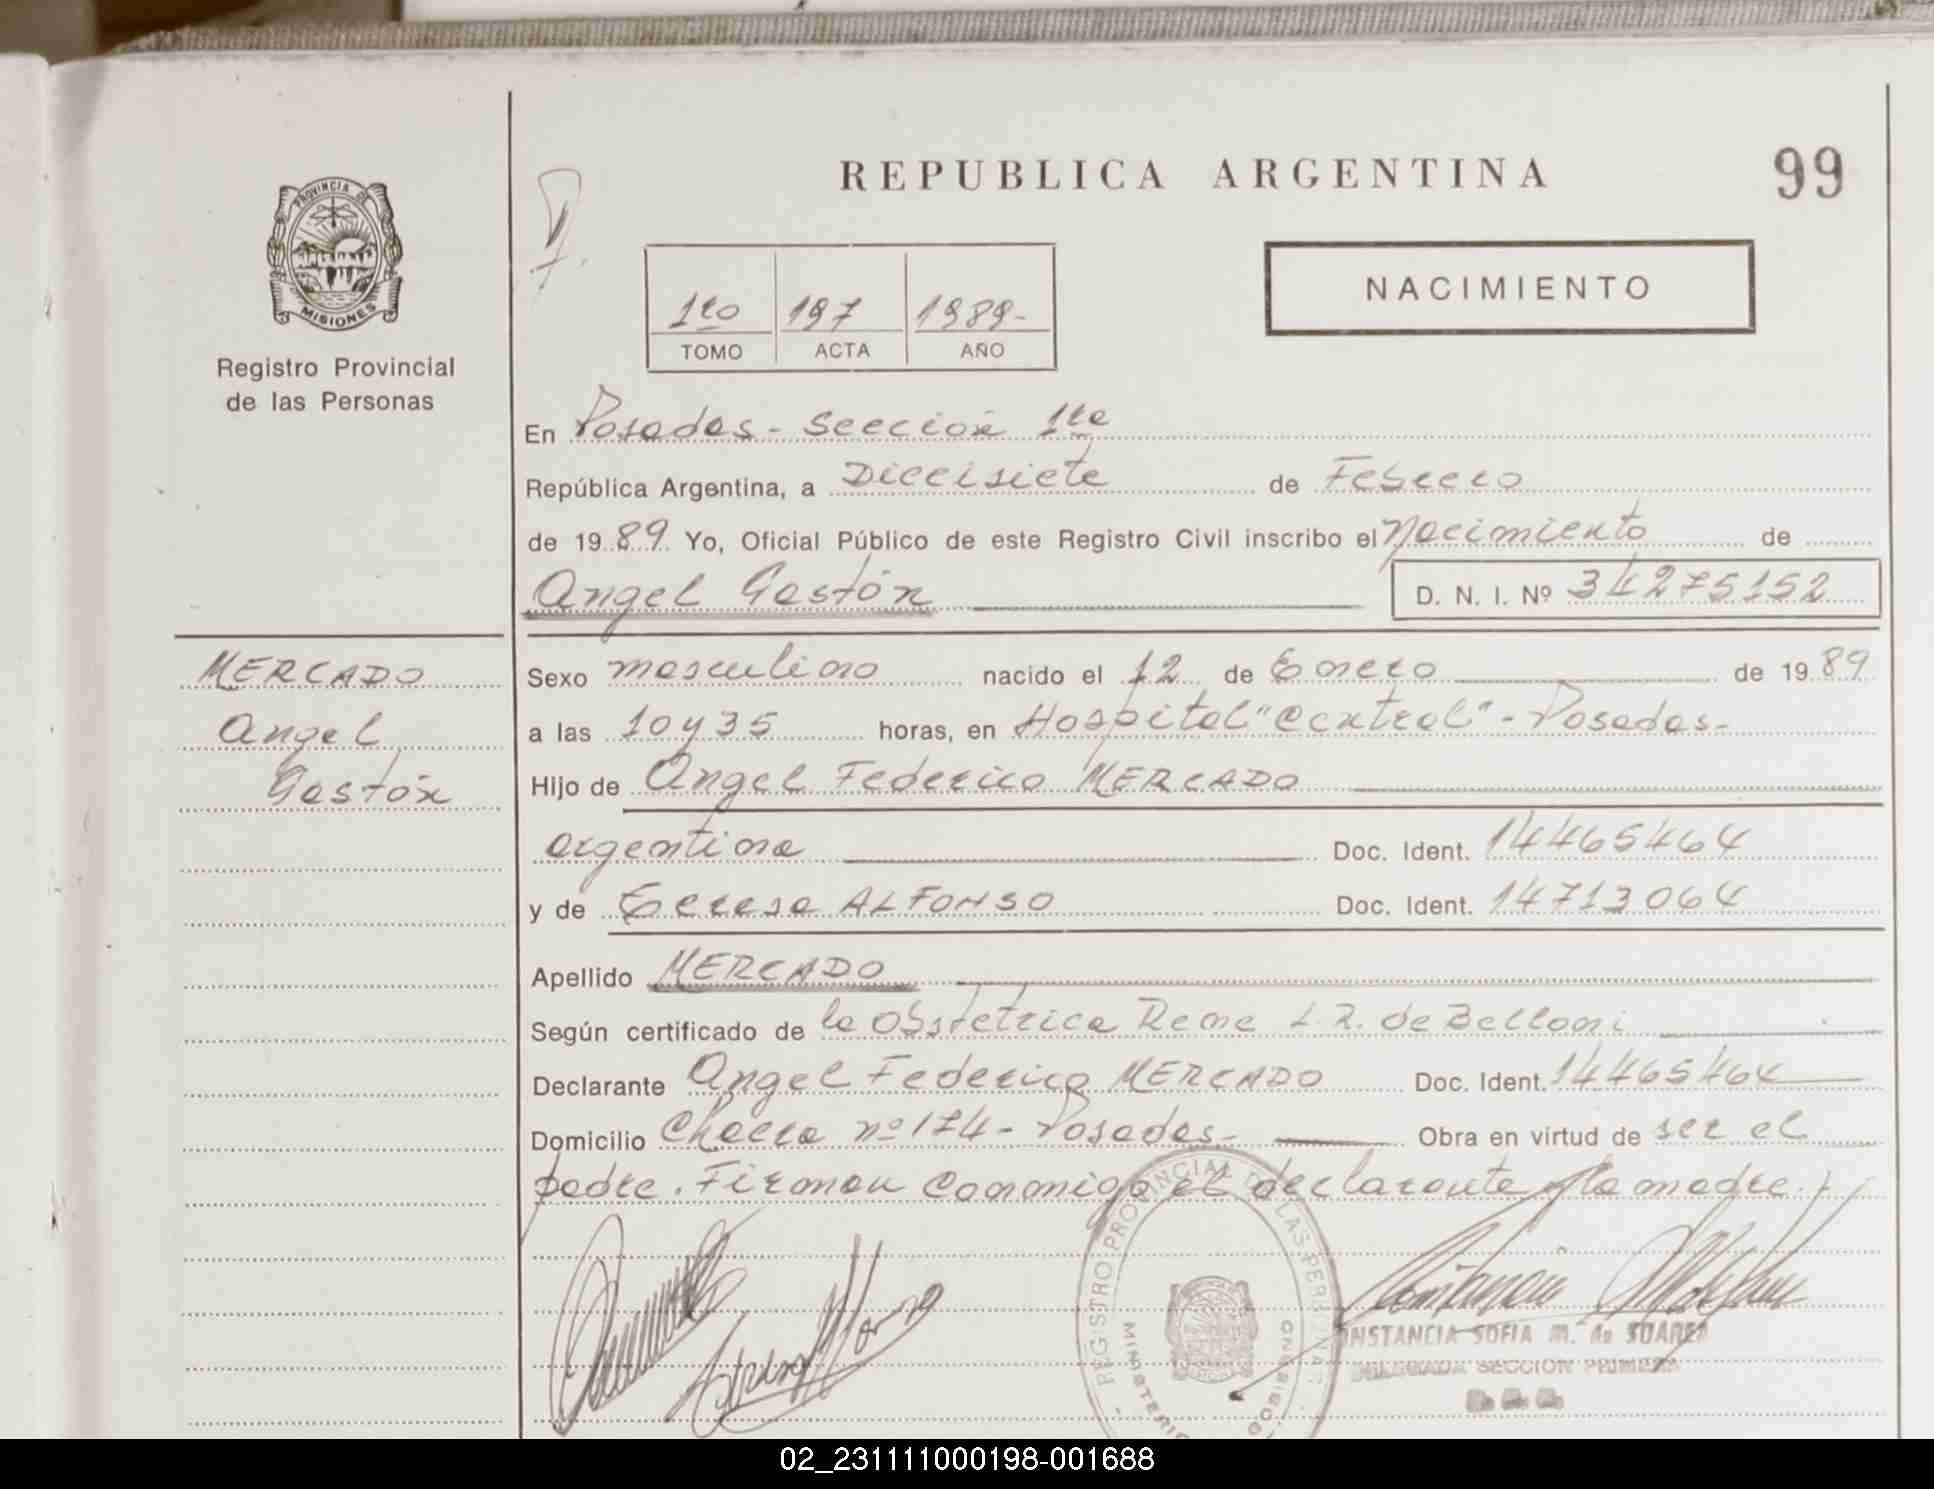 PROVINCIA DE
MISIONES
Registro Provincial
de las Personas
REPUBLICA ARGENTINA
99
NACIMIENTO
1ro 197 1989-
TOMO ACTA AÑO
En Posadas - Sección 1ra
República Argentina, a Diecisiete de Febrero
de 1989 Yo, Oficial Público de este Registro Civil inscribo el Nacimiento de
Angel Gastón D. N. I. Nº 34275152
MERCADO
Angel
Gastón
Sexo masculino nacido el 12 de Enero de 1989
a las 10 y 35 horas, en Hospital "Central" - Posadas-
Hijo de Angel Federico MERCADO
argentina Doc. Ident. 14465464
y de Teresa ALFONSO Doc. Ident. 14713064
Apellido MERCADO
Según certificado de la Obstetrica Rene L.R. de Belloni
Declarante Angel Federico MERCADO Doc. Ident. 14465464
Domicilio Chacra nº 174 - Posadas- Obra en virtud de ser el
padre. Firman conmigo el declarante y la madre.
REGISTRO PROVINCIAL DE LAS PERSONAS
MINISTERIO
CONSTANCIA SOFIA M. de SUAREZ
SECCION PRIMERA
02_231111000198-001688